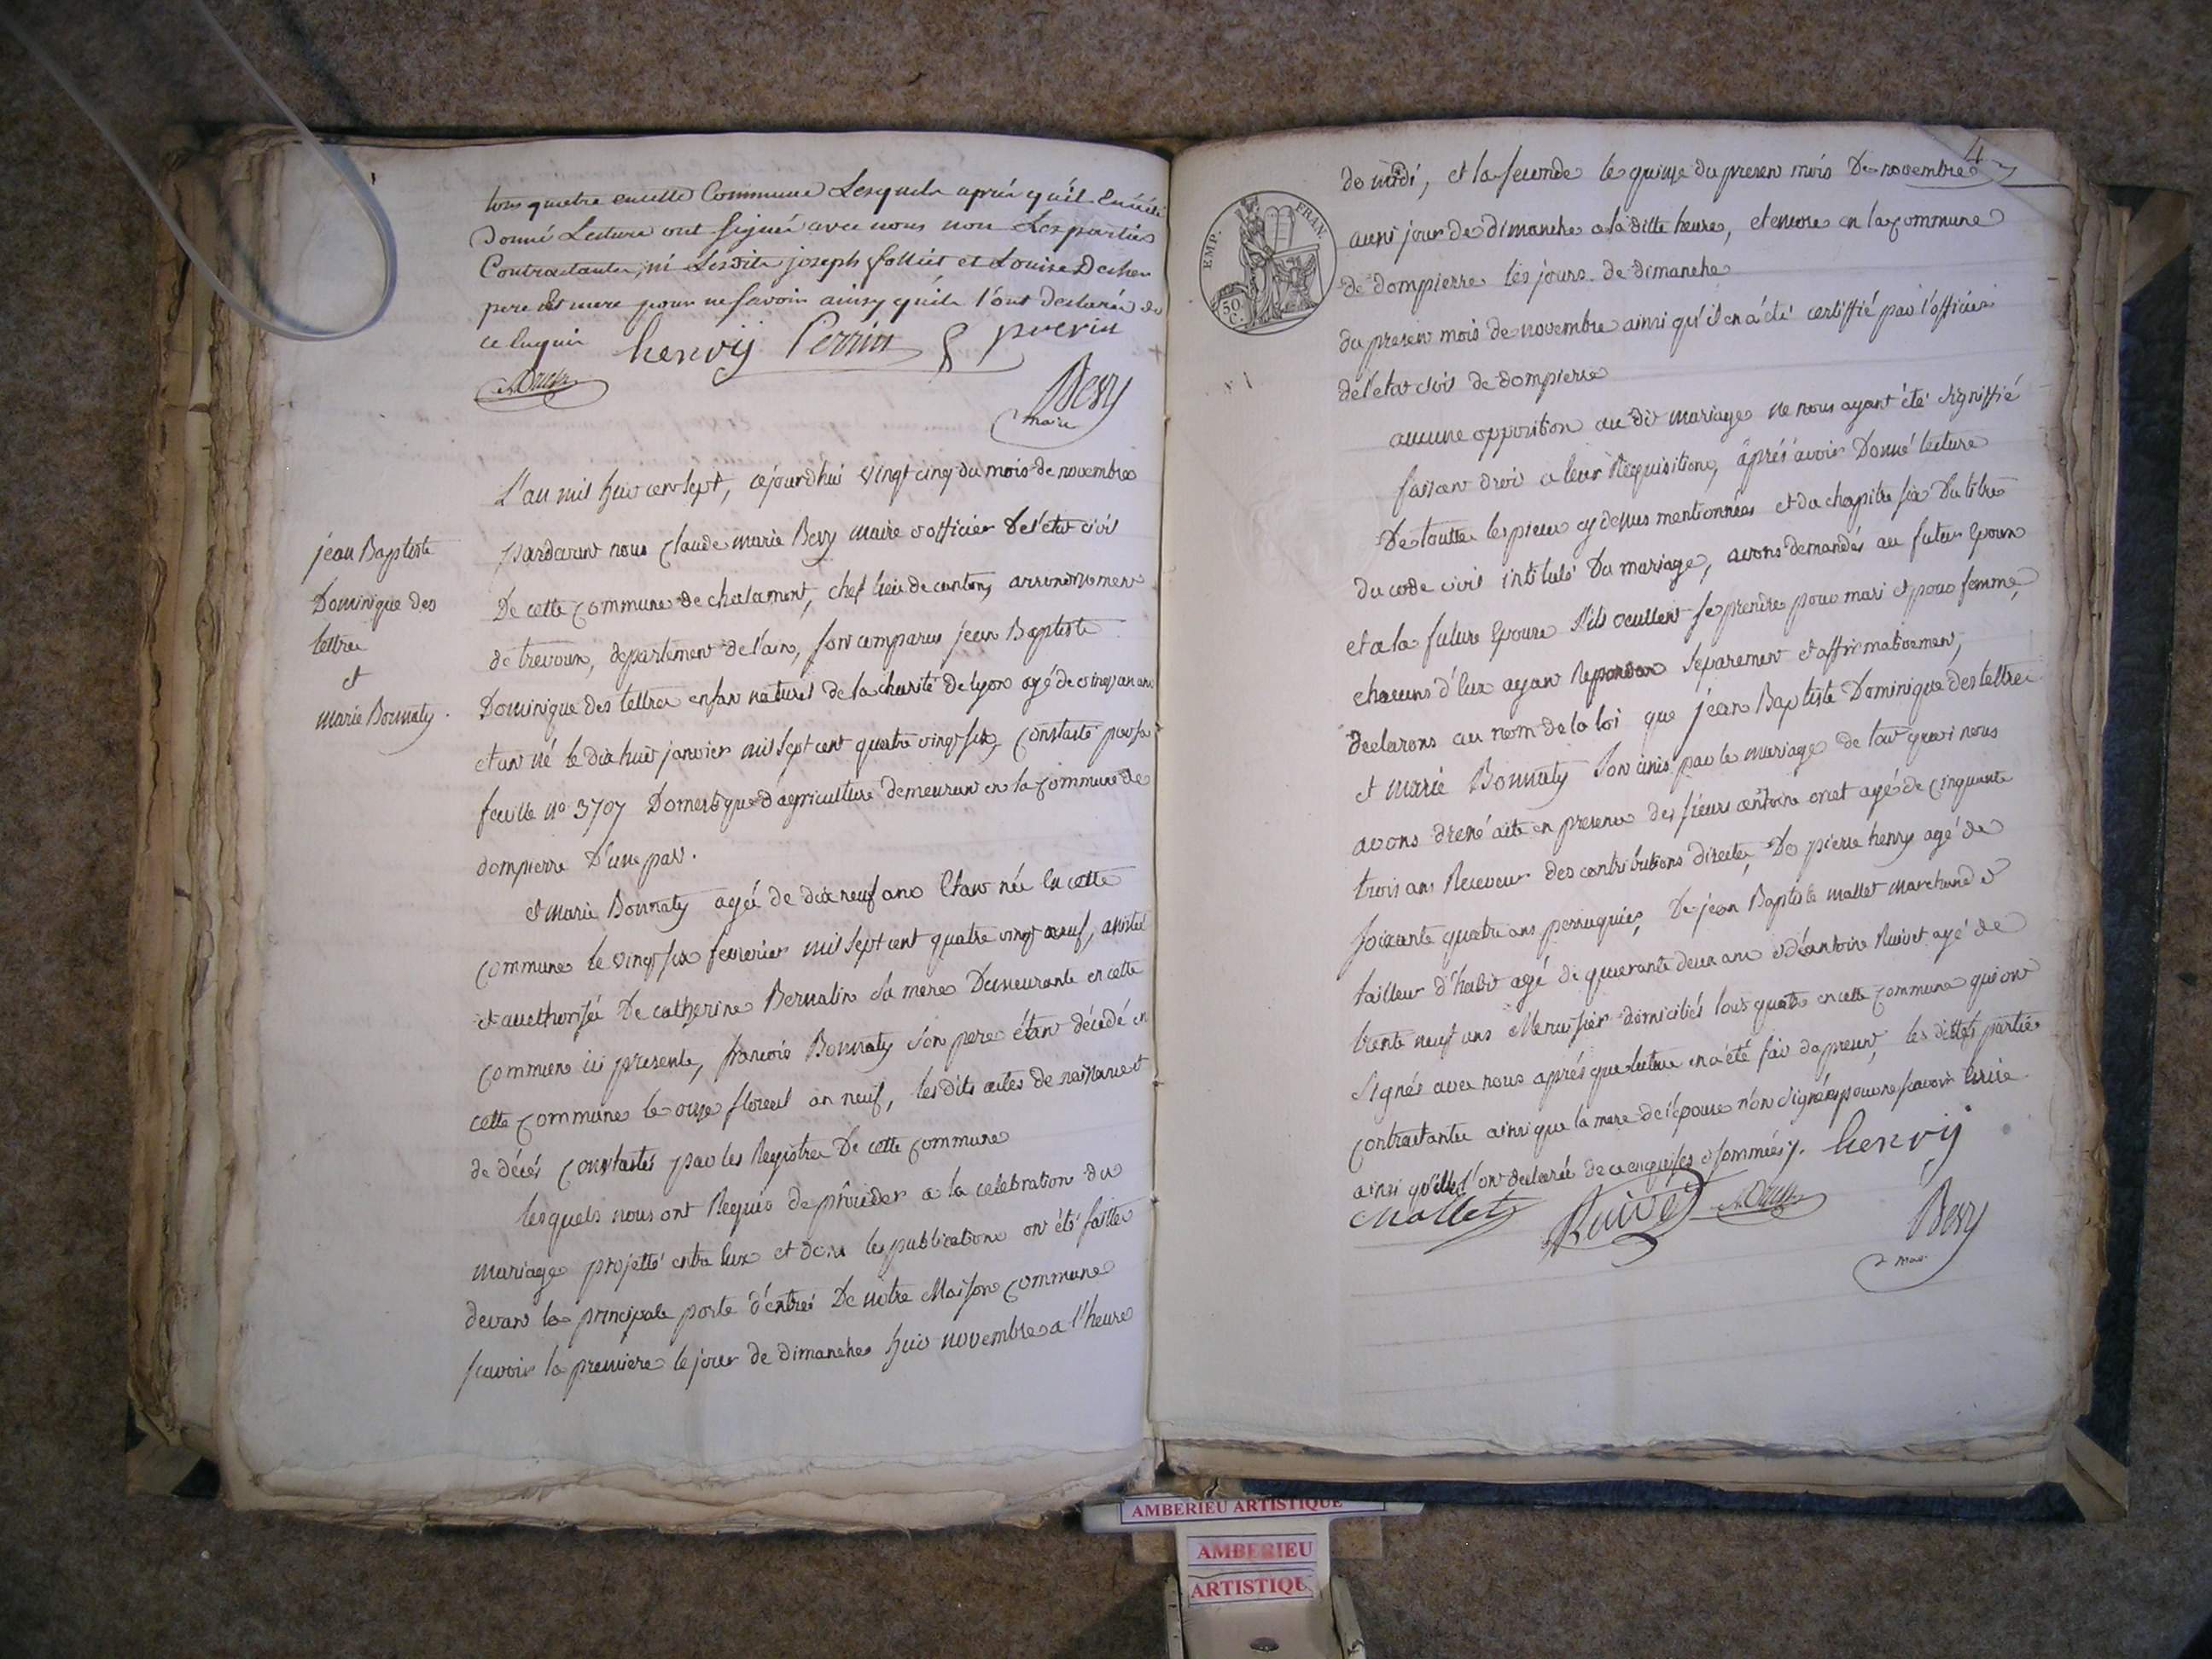 tous quatre en cette Commune Lesquels après qu'il En a été
Donné Lecture ont signé avec nous non Les parties
Contractantes, ni Lesdits joseph folliet et Louise Decher
pere et mere pour ne savoir ainsy quils l'ont declaré de
ce Enquis henry Perrin
Bevy
maire
jean Baptiste
Dominique des
lettres
et
marie Bonnaty.
L'an mil huit cent sept, cejourdhui vingt cinq du mois de novembre
pardevant nous Claude marie Bevy maire et officier De l'etat civil
De cette Commune de chalamont, chef lieu de canton, arrondissement
de trevoux, departement de l'ain, sont comparus jean Baptiste
Dominique des lettres enfant naturel de la charité de lyon agé de vingt un ans
etant né le dix huit janvier mil sept cent quatre vingt six, constaté par sa
feuille No 3707 Domestique d'agriculture demeurant en la Commune de
dompierre D'une part.
et Marie Bonnaty agée de dix neuf ans Etant née En cette
Commune le vingt six fevrier mil sept cent quatre vingt neuf, assistée
et aucthorisée De catherine Bernalin sa mere Demeurante en cette
Commune ici presente, francois Bonnaty son pere étant décedé en
cette Commune le onze floreal an neuf, lesdits actes de naissance et
de décés constatés par les Registres De cette Commune
lesquels nous ont Requis de procéder a la celebration du
mariage projetté entre Eux et dont les publications ont été faittes
devant la principale porte d'entrée De notre Maison Commune
scavoir la premiere le jour de dimanche huit novembre a l'heure
4
EMP. FRAN.
50 C.
de midi, et la seconde le quinze du present mois De novembre
aussi jour de dimanche a la ditte heure, et encore en la Commune
de dompierre les jours de dimanche
du present mois de novembre ainsi qu'il en a été certiffié par l'officier
de l'etat civil de dompierre
aucune opposition au dit mariage ne nous ayant été signiffié
faisant droit a leur Requisition, aprés avoir Donné lecture
De toutte les pieces cy dessus mentionnées et du chapitre six Du titre
du code civil intitulé Du mariage, avons demandés au futur Epoux
et a la future Epouse s'ils veullent se prendre pour mari et pour femme,
chacuns d'Eux ayant Repondu separement et affirmativement,
declarons au nom de la loi que jean Baptiste Dominique des lettres
et marie Bonnaty sont unis par le mariage de tout quoi nous
avons dressé acte en presence des sieurs antoine oriet agé de cinquante
trois ans Receveur des contributions directes, De pierre henry agé de
soixante quatre ans perruquier, De jean Baptiste mallet marchand et
tailleur d'habit agé de quarante deux ans et d'antoine Ruivet agé de
trente neuf ans Menuisier domiciliés tous quatre en cette Commune qui ont
signés avec nous aprés que lecture en a été fait dapresent, les dittes parties
contractantes ainsi que la mere de l'epouse n'ont signées pour ne scavoir Ecrire
ainsi qu'elles l'ont declarée de ce enquises et sommées ./. henry
Mallet Ruivet
Bevy
maire
AMBERIEU ARTISTIQUE
AMBERIEU
ARTISTIQU